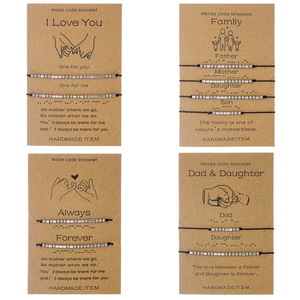 Morse code bracelet
I Love You
One for you
One for me
No matter where we go.
No matter what we do.
You'll always be there for me
and I'll always be there for you
HANDMADE ITEM
Morse code bracelets
Family
Father
Mother
Daughter
Son
The family is one of
nature's masterpiece.
HANDMADE ITEM
Morse code bracelet
Always
Forever
No matter where we go.
No matter what we do.
You'll always be there for me
and I'll always be there for you
HANDMADE ITEM
Morse code bracelets
Dad & Daughter
Dad
Daughter
The love between a father
and daughter is forever.
HANDMADE ITEM